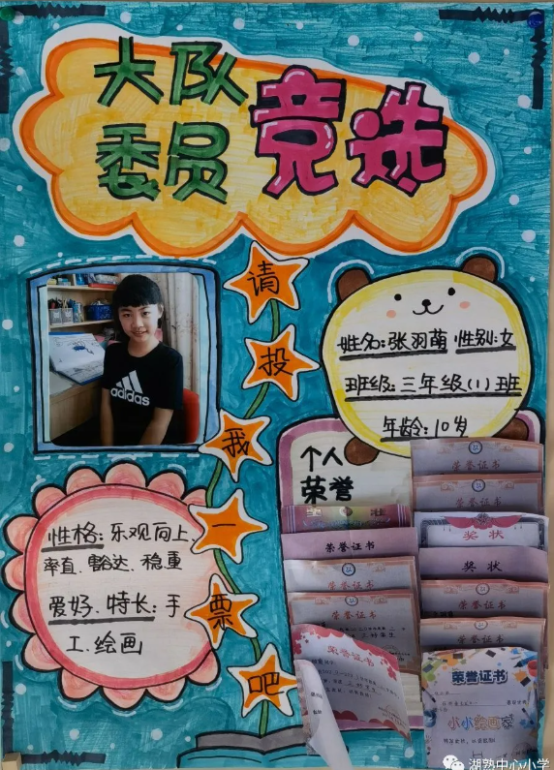 大队
委员竞选
请投我一票吧
adidas
姓名:张羽萌 性别:女
班级:三年级(1)班
年龄:10岁
个人
荣誉
性格:乐观向上、
率直、豁达、稳重
爱好、特长:手
工、绘画
荣誉证书
荣誉证书
荣誉证书
荣誉证书
荣誉证书
荣誉证书
奖状
奖状
荣誉证书
荣誉证书
荣誉证书
湖熟中心小学